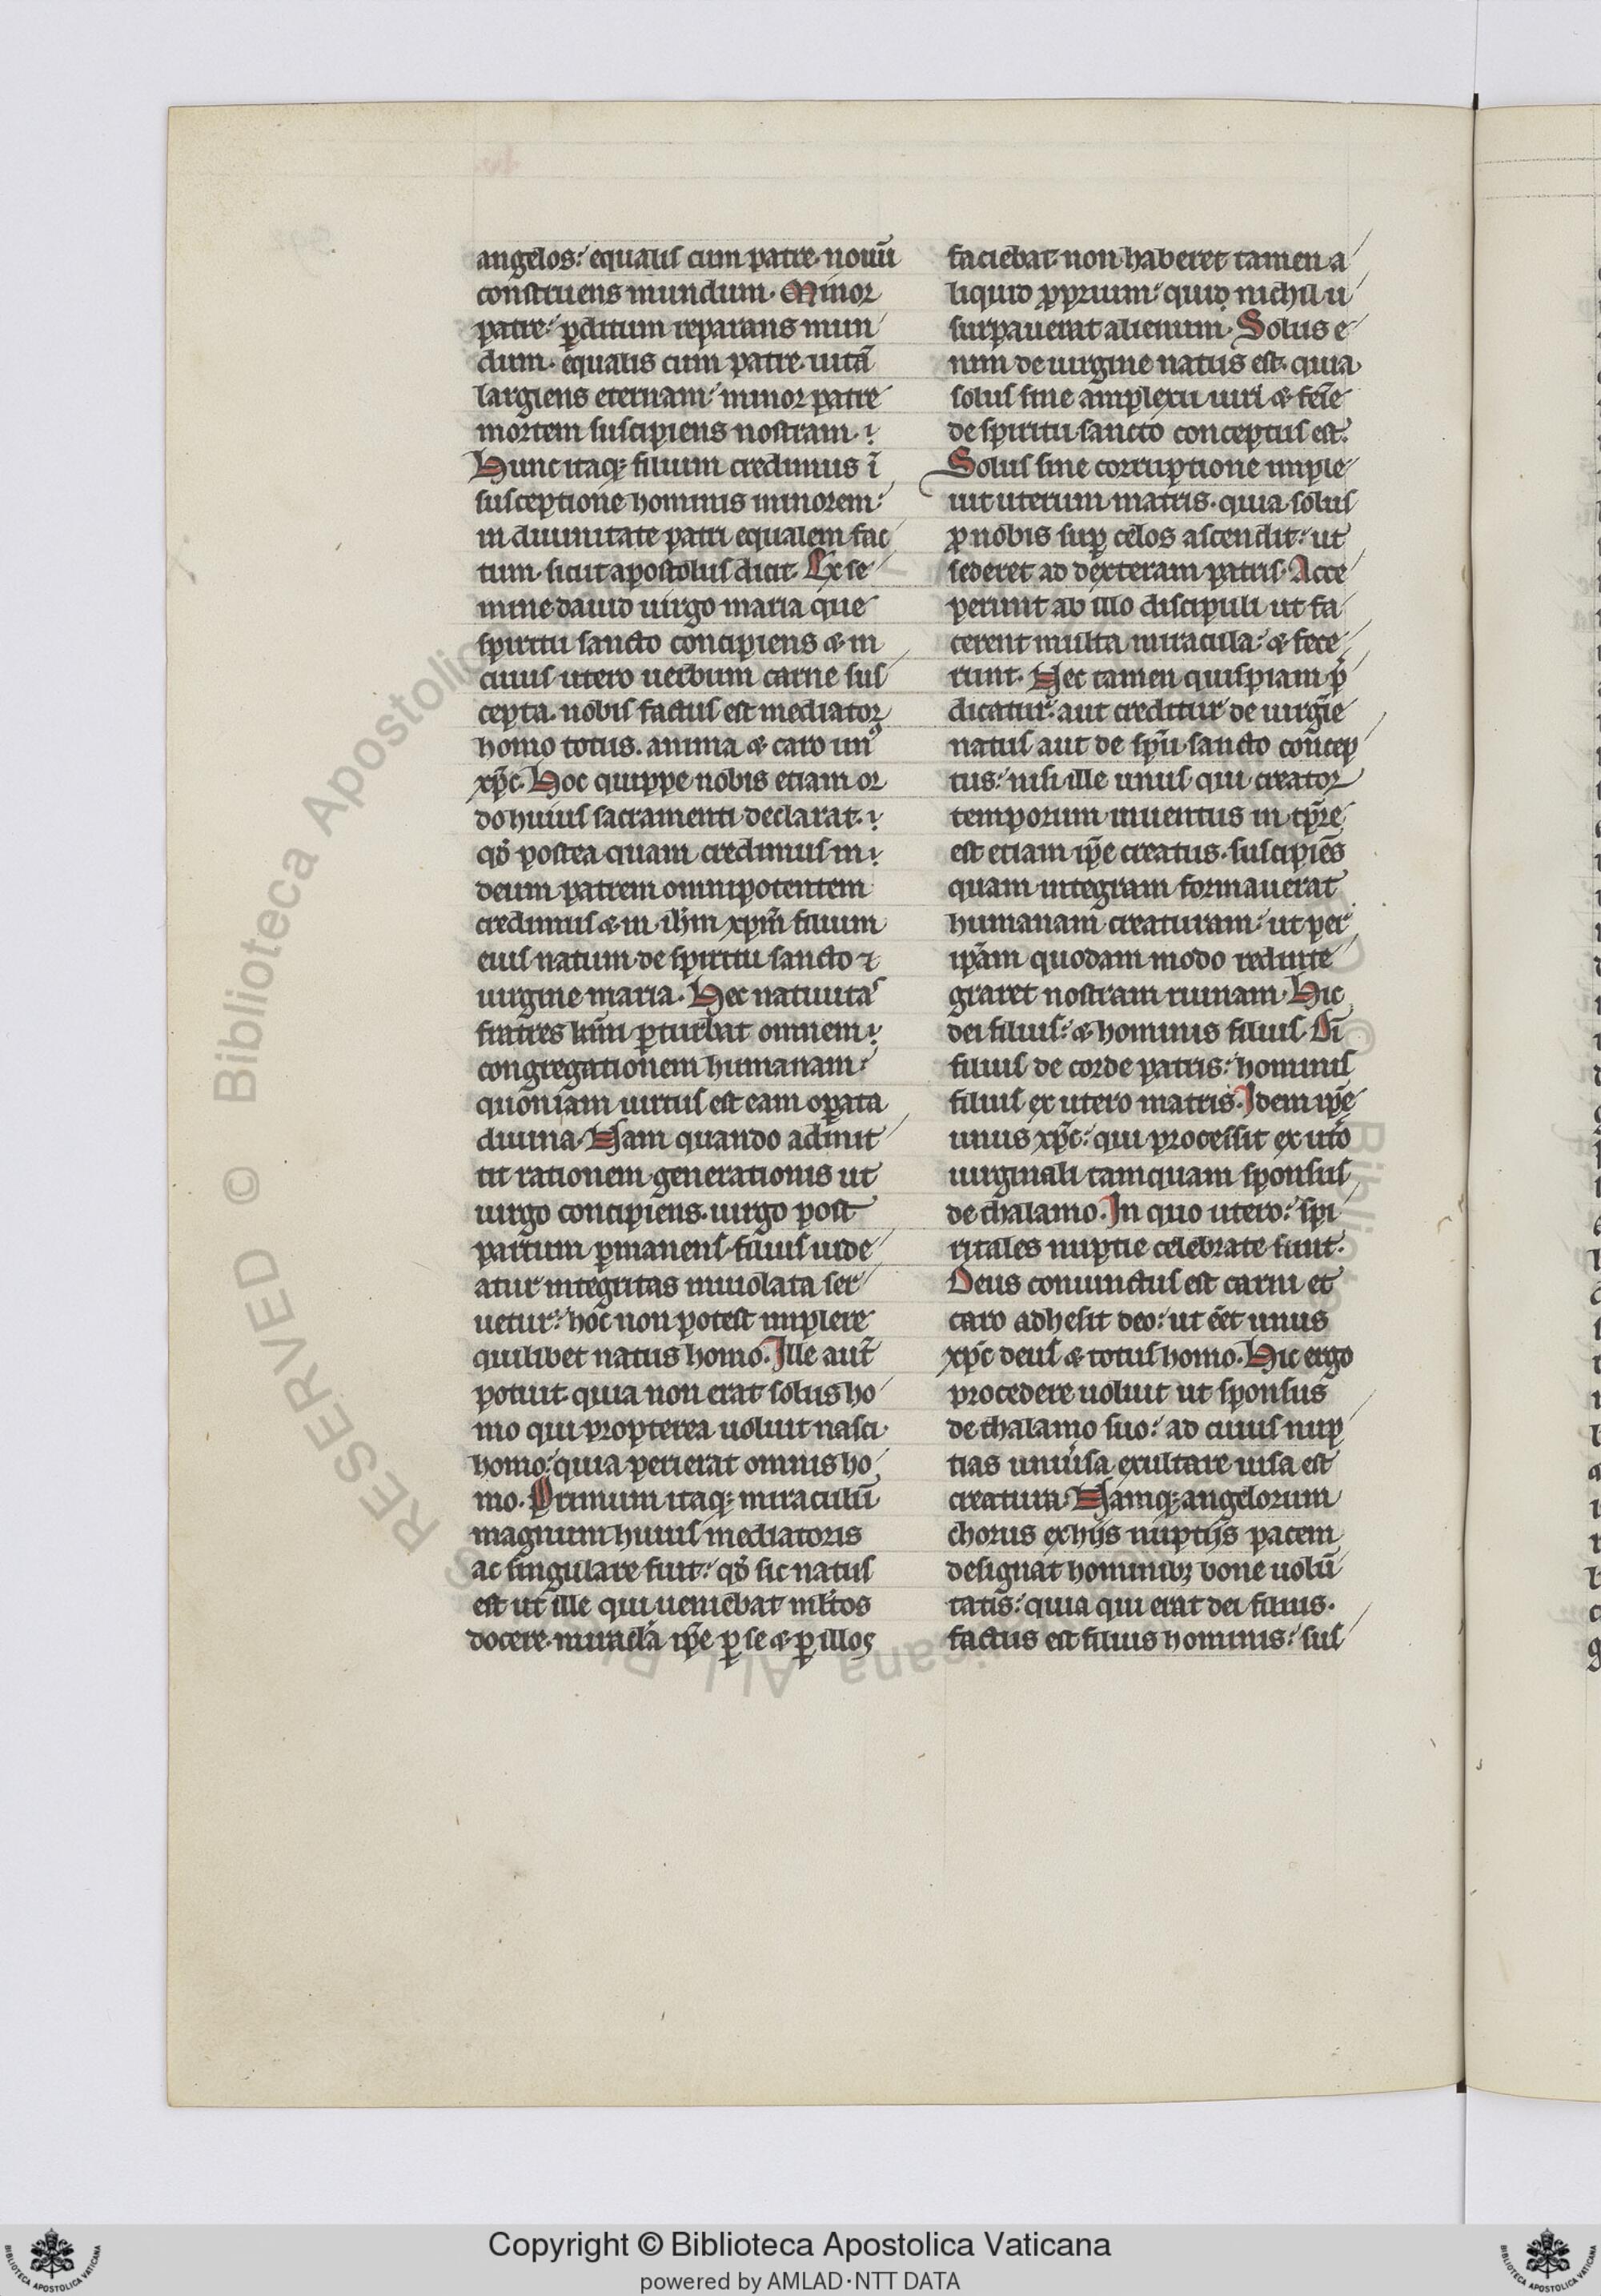 angelos: equalis cum patre. nouū
construens mundum. Minor
patre: ꝑditum reparans mun
dum. equalis cum patre. uitā
largiens eternam: minor patre
mortem suscipiens nostram.
Hunc itaqꝫ filium credimus ī
susceptione hominis minorem:
in diuinitate patri equalem fac
tum. sicut apostolus dicit. Ex se
mine dauid uirgo maria que
spiritu sancto concipiens & in
cuius utero uerbum carne sus
cepta. nobis factus est mediator
homo totus. anima & caro unꝰ
xp̄c. Hoc quippe nobis etiam or
do huius sacramenti declarat.
qd̓ postea quam credimus in
deum patrem omnipotentem
credimus & in ih̄m xp̄m filium
eius natum de spiritu sancto ⁊
uirgine maria. Hec natiuitas
fratres km̄ ꝑturbat omnem
congregationem humanam:
quoniam uirtus est eam oꝑata
diuina. Nam quando admit
tit rationem generationis ut
uirgo concipiens. uirgo post
partum ꝑmanens. filius uide
atur integritas inuiolata ser
uetur: hoc non potest implere
quilibet natus homo. Ille aut̄
potuit. quia non erat solus ho
mo qui propterea uoluit nasci
homo: quia perierat omnis ho
mo. Primum itaqꝫ miraculū
magnum huius mediatoris
ac singulare fuit: qd̓ sic natus
est ut ille qui ueniebat ml̄tos
docere. miracl̓a ip̄e ꝑ se & ꝑ illos
faciebat. non haberet tamen a
liquid ꝓprium: quid nichil u
surpauerat alienum. Solus e
nim de uirgine natus est. quia
solus sine amplexu uiri & fēīe
de spiritu sancto conceptus est.
Solus sine corruptione imple
uit uterum matris. quia solus
ꝓ nobis suꝑ celos ascendit: ut
sederet ad dexteram patris. Acce
perunt ab illo discipuli ut fa
cerent multa miracula: & fece
runt. Nec tamen quispiam p̄
dicatur: aut creditur de uirgīe
natus aut de spū sancto concep
tus: nisi ille unus qui creator
temporum inuentus in tp̄re
est etiam ip̄e creatus. suscipiēs
quam integram formauerat
humanam creaturam: ut per
ip̄am quodam modo redinte
graret nostram ruinam. Hic
dei filius: & hominis filius. Dī
filius de corde patris: hominis
filius ex utero matris. Idem ip̄e
unus xp̄c: qui processit ex uto
uirginali tamquam sponsus
de thalamo. In quo utero: spi
ritales nuptie celebrate sunt.
Deus coniunctus est carni et
caro adhesit deo: ut eēt unus
xp̄c deus & totus homo. Hic ergo
procedere uoluit ut sponsus
de thalamo suo: ad cuius nup
tias uniusa exultare uisa est
creatura. Namqꝫ angelorum
chorus ex hijs nuptijs pacem
designat hominibꝫ bone uolū
tatis: quia qui erat dei filius.
factus est filius hominis: sus
Copyright © Biblioteca Apostolica Vaticana
powered by AMLAD·NTT DATA